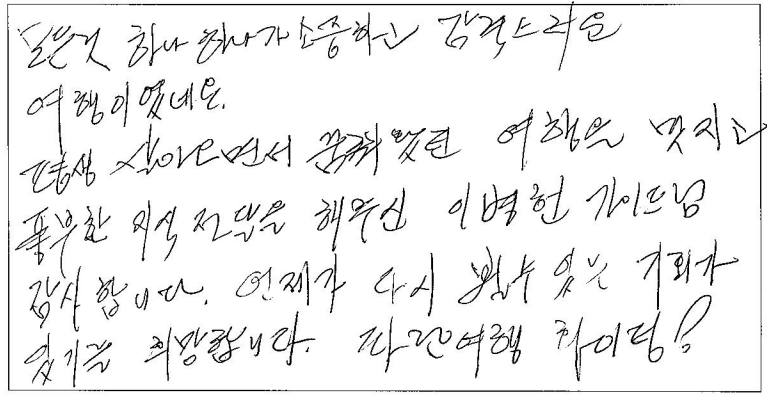 모든것 하나 하나가 소중하고 감격스러운
여행이였네요.
평생 살아오면서 꿈꿔왔던 여행은 멋지고
풍부한 지식 전달을 해주신 이병헌 가이드님
감사 합니다. 언제가 다시 뵐수 있는 기회가
있기를 희망합니다. 파란여행 화이팅!